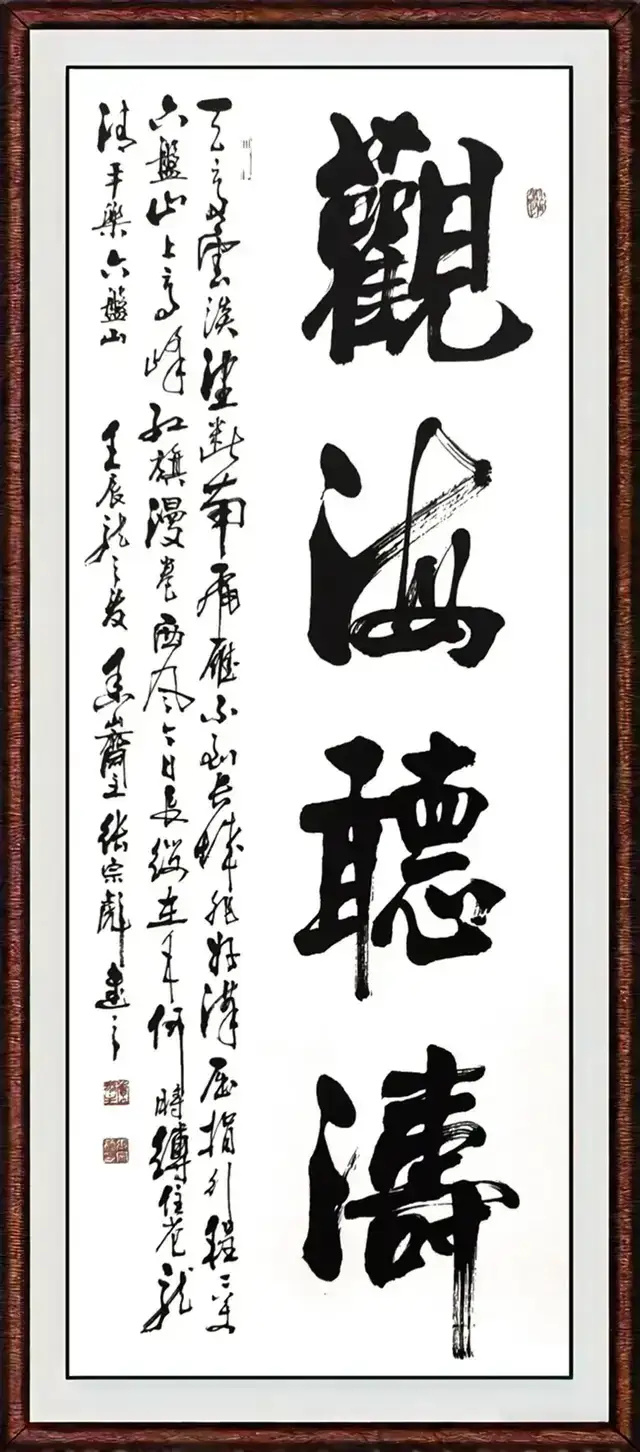 觀海聽濤
天高雲淡望斷南飛雁不到長城非好漢屈指行程二萬
六盤山上高峰紅旗漫卷西風今日長纓在手何時縛住蒼龍
清平樂六盤山 壬辰龍之歲 主張宗彪書之